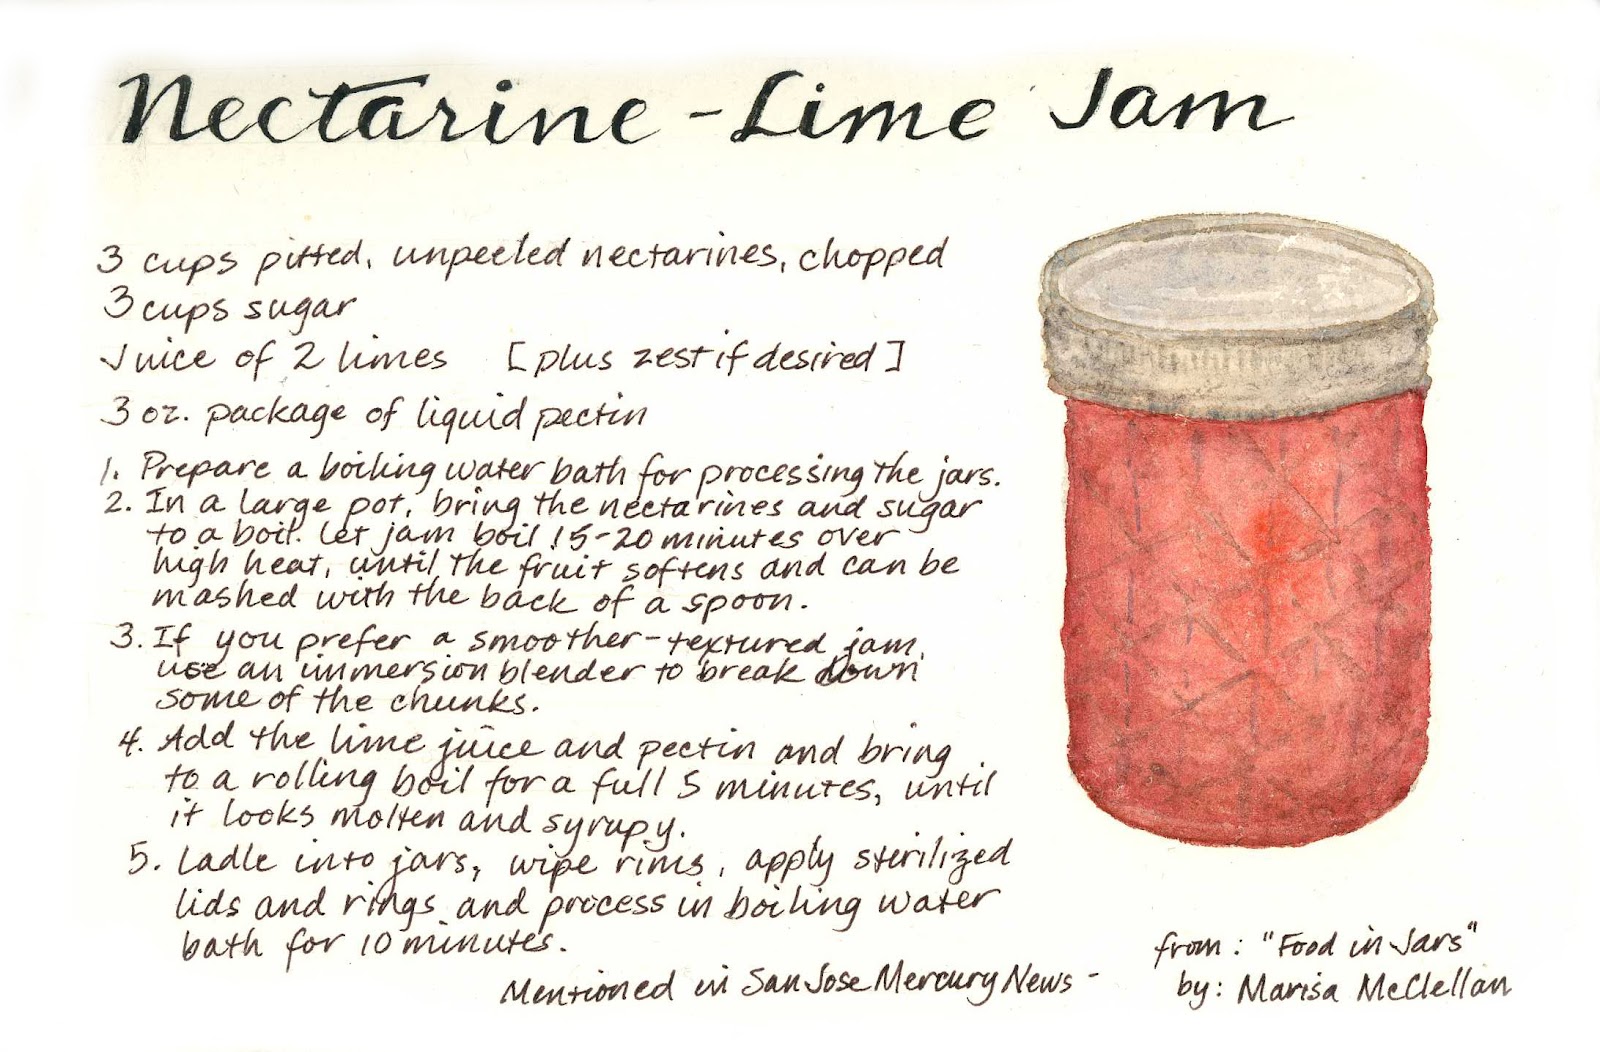 Nectarine - Lime Jam
3 cups pitted, unpeeled nectarines, chopped
3 cups sugar
Juice of 2 limes [plus zest if desired]
3 oz. package of liquid pectin
1. Prepare a boiling water bath for processing the jars.
2. In a large pot, bring the nectarines and sugar
to a boil. Let jam boil 15-20 minutes over
high heat, until the fruit softens and can be
mashed with the back of a spoon.
3. If you prefer a smoother-textured jam,
use an immersion blender to break down
some of the chunks.
4. Add the lime juice and pectin and bring
to a rolling boil for a full 5 minutes, until
it looks molten and syrupy.
5. Ladle into jars, wipe rims, apply sterilized
lids and rings and process in boiling water
bath for 10 minutes.
Mentioned in San Jose Mercury News -
from: "Food in Jars"
by: Marisa McClellan